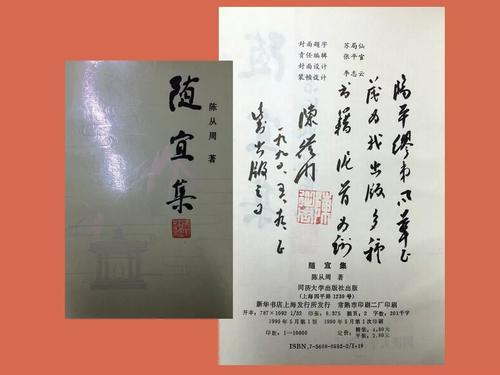 随宜集
陈从周 著
封面题字 苏局仙
责任编辑 张平官
封面设计
装帧设计 李志云
为我出版多种
书籍
陳從周
書出版之日
随宜集
陈从周 著
同济大学出版社出版
(上海四平路1239号)
新华书店上海发行所发行 常熟市印刷二厂印刷
开本:787×1092 1/32 印张:8.375 插页:2 字数:201千字
1990年5月第1版 1990年5月第1次印刷
印数:1—10000 定价:精装:4.80元
平装:2.80元
ISBN.7-5608-0592-2/I·19